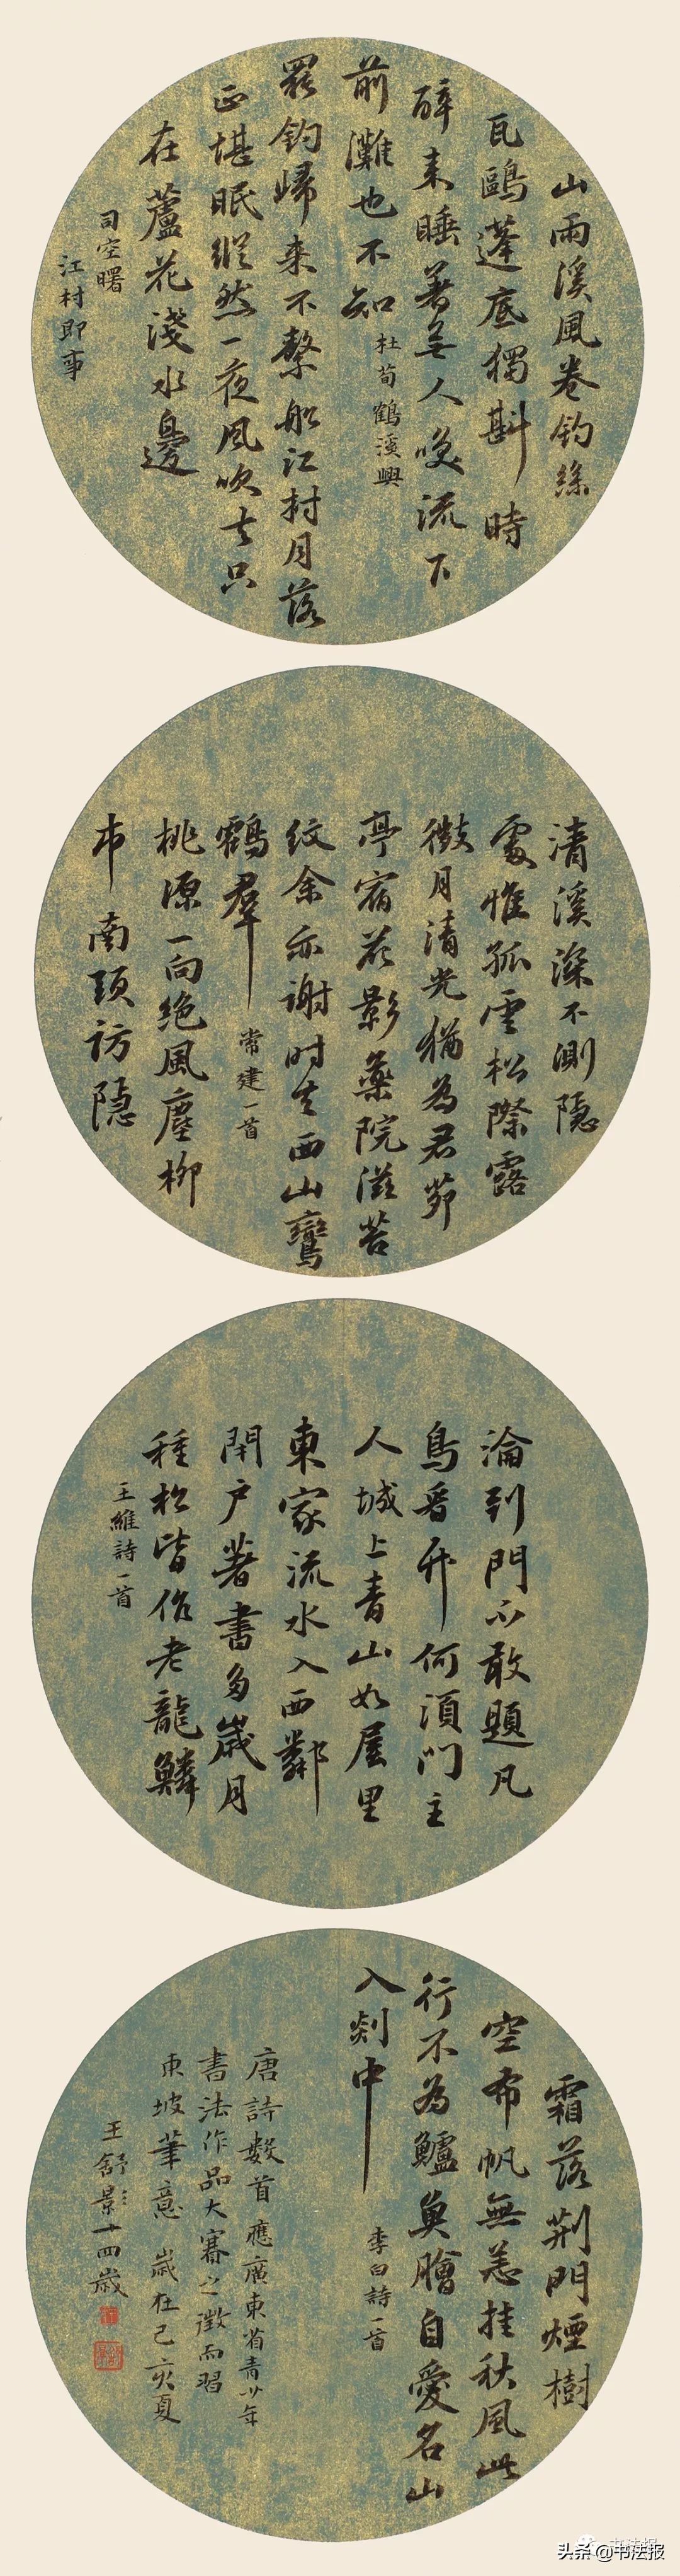 山雨溪風卷釣絲
瓦甌蓬底獨斟時
醉来睡著無人喚流下
前灘也不知
杜荀鶴溪興
罷釣歸来不繫船江村月落
正堪眠縱然一夜風吹去只
在蘆花淺水邊
司空曙
江村即事
清溪深不測隱
處惟孤雲松際露
微月清光猶為君茆
亭宿花影藥院滋苔
紋余亦謝时去西山鸞
鶴羣
常建一首
桃源一向絕風塵柳
市南頭訪隱
淪到門不敢題凡
鳥看竹何須門主
人城上青山如屋里
東家流水入西鄰
閉户著書多歲月
種松皆作老龍鱗
王維詩一首
霜落荆門煙樹
空布帆無恙挂秋風此
行不為鱸魚膾自愛名山
入剡中
李白詩一首
唐詩數首應廣東省青少年
書法作品大賽之徵而習
東坡筆意歲在己亥夏
王舒影十四歲
头条 @书法报